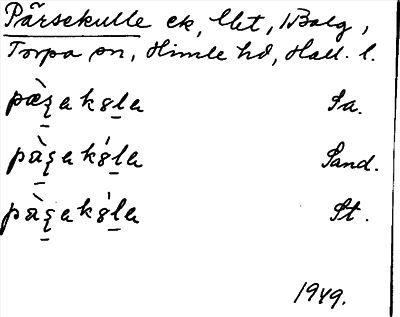 Pärsekulle ek, Met, 1Balg,
Torpa sn, Himle hd, Hall. l.
pæ̀ʂakɞla Sa.
pàʂakɞ́la Sand.
pàʂakɞ́la St.
1949.